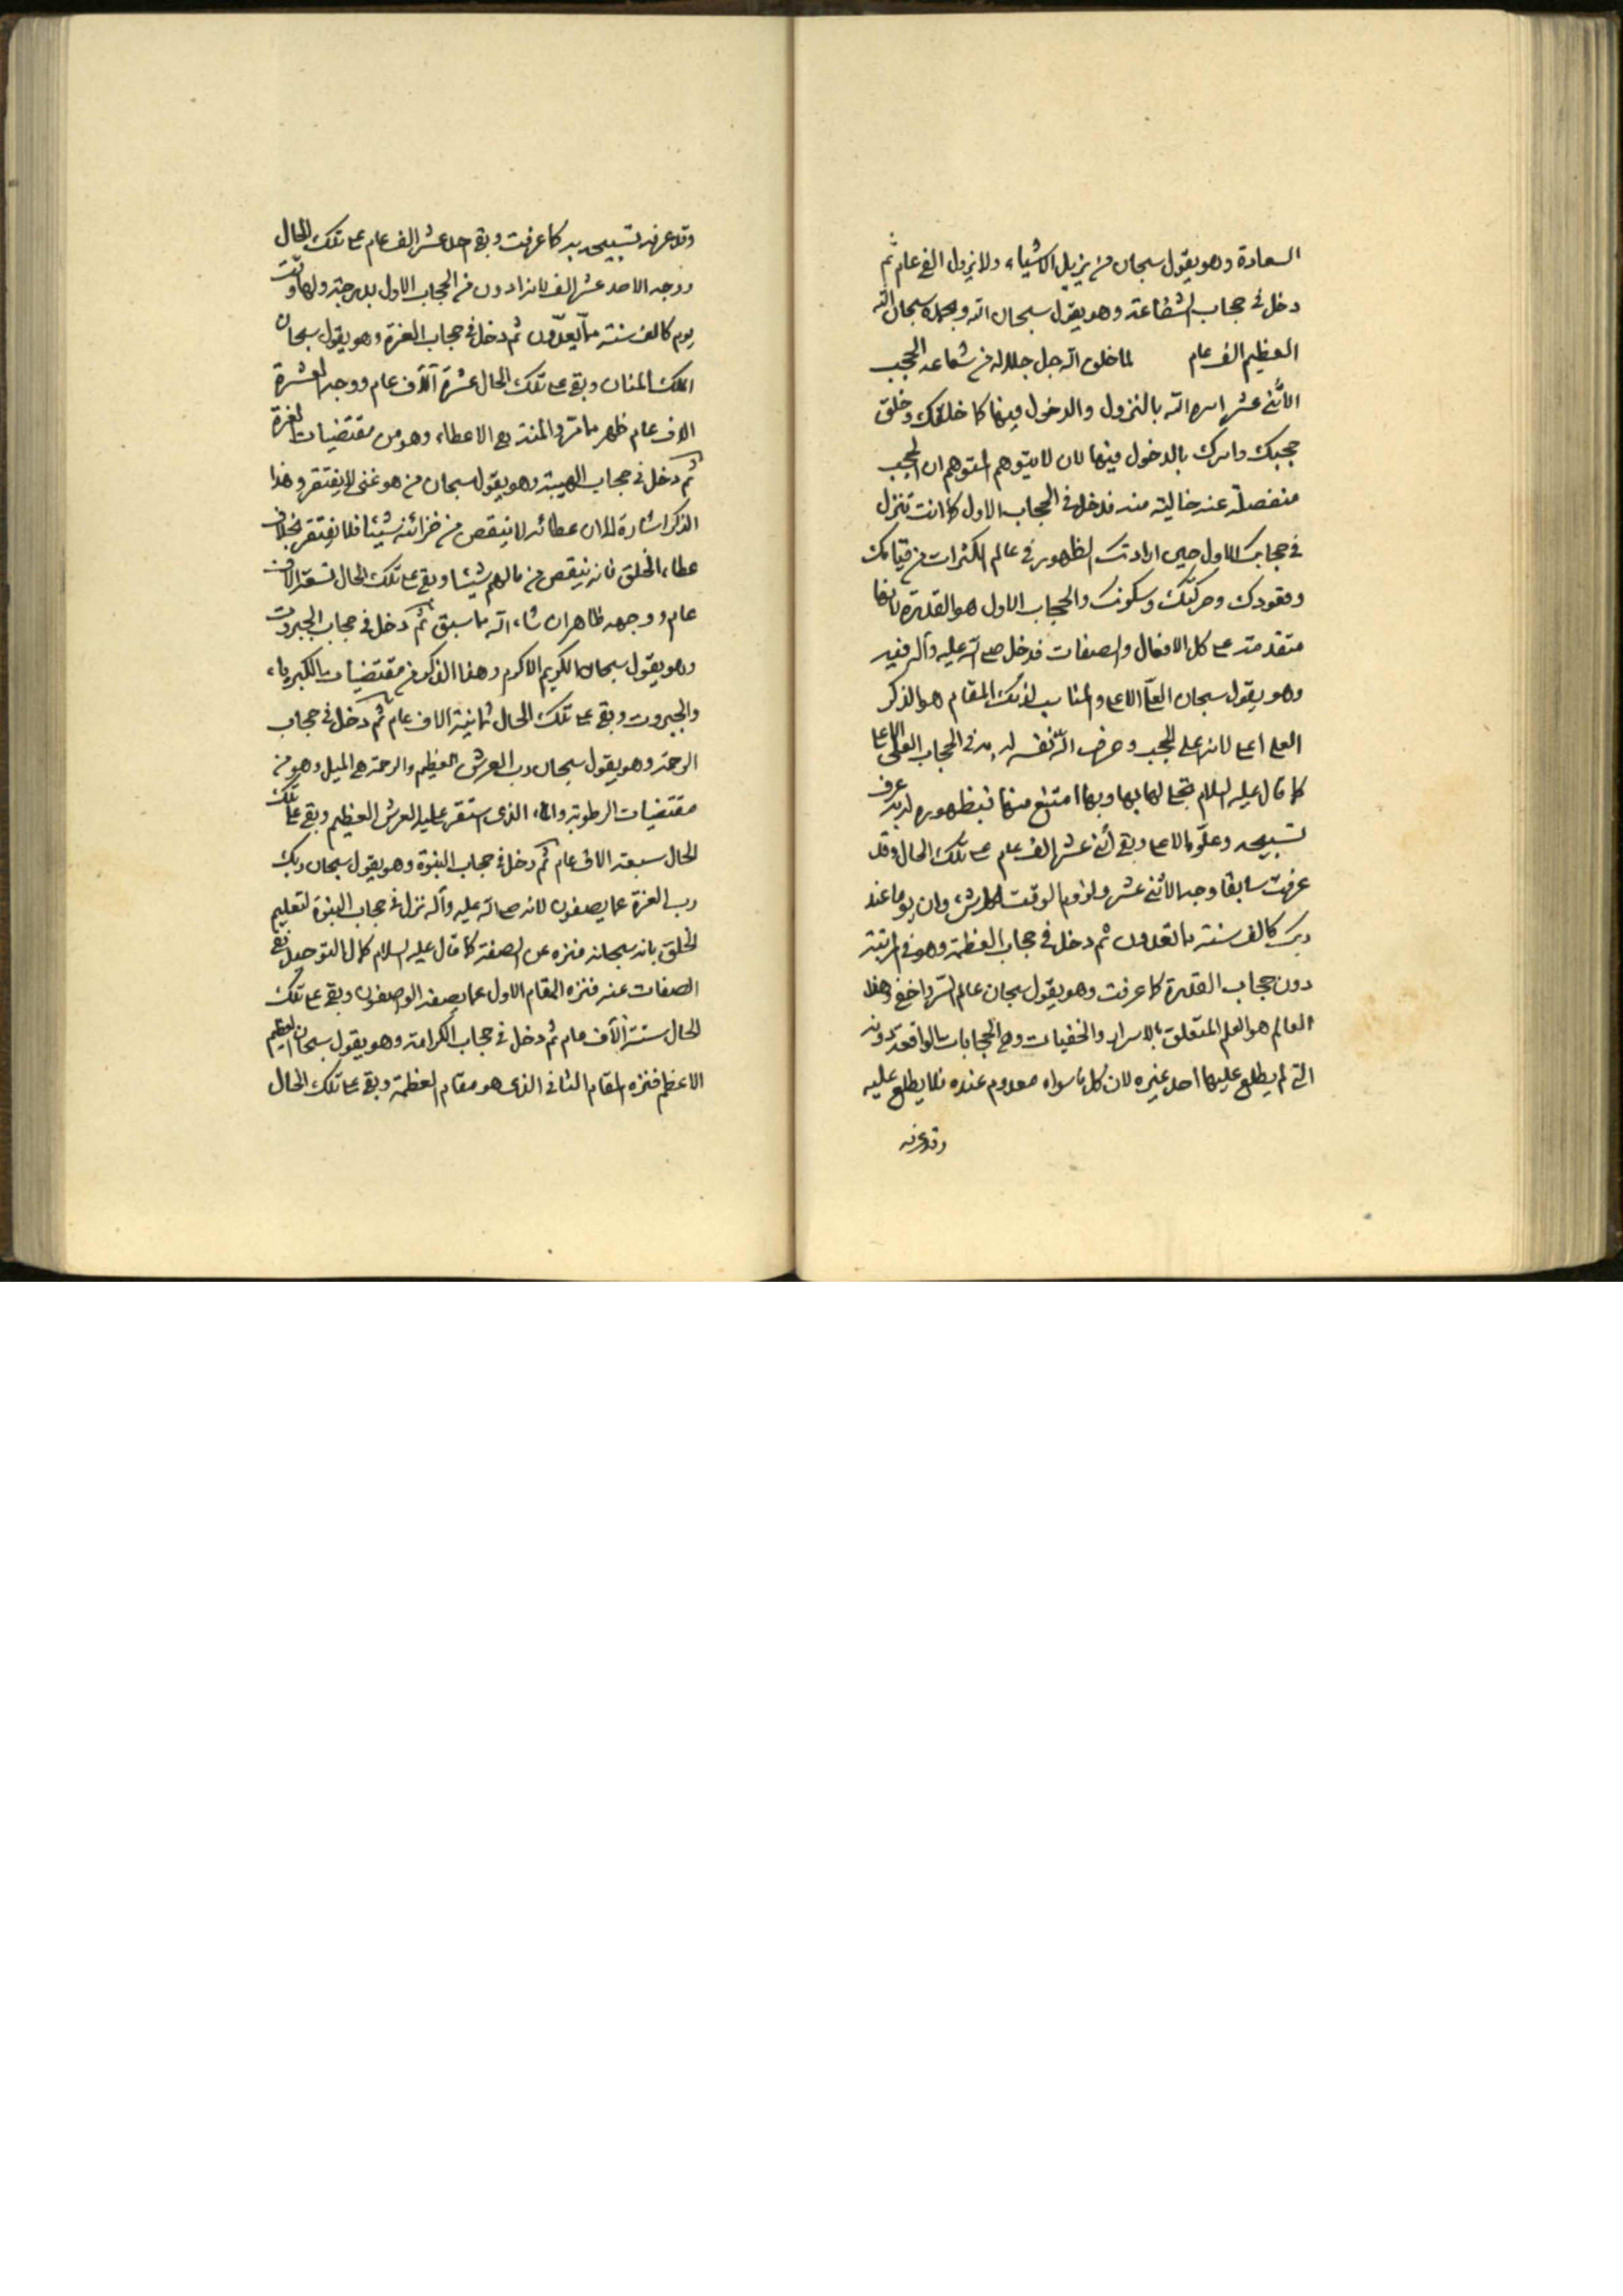 السعادة وهو يقول سبحان من يزيل الاشياء ولا يزول الفي عام ثم
دخل في حجاب الشفاعة وهو يقول سبحان الله وبحمده سبحان الله
العظيم الف عام لما خلق الله جل جلاله من شعاعه الحجب
الاثنى عشر امره الله بالنزول والدخول فيها كما خلقك وخلق
حجبك وامرك بالدخول فيها لان لا يتوهم المتوهم ان الحجب
منفصلة عنه خالية منه فدخل في الحجاب الاول كما انت تنزل
في حجابك الاول حين ارادتك الظهور في عالم الكثرات من قيامك
وقعودك وحركتك وسكونك والحجاب الاول هو القدرة فانها
متقدمة على كل الافعال والصفات فدخل صلى الله عليه وآله فيه
وهو يقول سبحان العلي الاعلى والمناسب لذلك المقام هو الذكر
العلي اعلى لانه اعلى الحجب وعرف الله نفسه له به في الحجاب العلي الاعلى
كما قال عليه السلام تجلى لها بها وبها امتنع منها فبظهوره له به عرف
تسبيحه وعلوه الاعلى وبقي اثنى عشر الف عام على تلك الحال وقد
عرفت سابقا وجه الاثنى عشر ولزوم الوقت وان يوما عند
ربك كالف سنة مما تعدون ثم دخل في حجاب العظمة وهو في المرتبة
دون حجاب القدرة كما عرفت وهو يقول سبحان عالم السر واخفى وهذا
العالم هو العلم المتعلق بالاسرار والخفيات وهي الحجابات الواقعة دونه
التي لم يطلع عليها احد غيره لان كل ما سواه معدوم عنده فلا يطلع عليه
وقد عرفه
وقد عرفه تسبيحه به كما عرفت وبقي احد عشر الف عام على تلك الحال
ووجه الاحد عشر الف لانه ادون من الحجاب الاول بدرجة ولها وقت
يوم كالف سنة مما يعدون ثم دخل في حجاب العزة وهو يقول سبحان
الملك المنان وبقي على تلك الحال عشرة آلاف عام ووجه العشرة
الاف عام ظهر مما مر والمنة هي الاعطاء وهو من مقتضيات العزة
ثم دخل في حجاب الهيبة وهو يقول سبحان من هو غني لا يفتقر وهذا
الذكر اشارة الى ان عطائه لا ينقص من خزائنه شيئا فلا يفتقر بخلاف
عطاء الخلق فانه ينقص من مالهم شيئا وبقي على تلك الحال تسعة الاف
عام ووجهه ظاهر ان شاء الله مما سبق ثم دخل في حجاب الجبروت
وهو يقول سبحان الكريم الاكرم وهذا الذكر من مقتضيات الكبرياء
والجبروت وبقي على تلك الحال ثمانية الاف عام ثم دخل في حجاب
الرحمة وهو يقول سبحان رب العرش العظيم والرحمة هي الميل وهو من
مقتضيات الرطوبة والماء الذي استقر عليه العرش العظيم وبقي على تلك
الحال سبعة الاف عام ثم دخل في حجاب النبوة وهو يقول سبحان ربك
رب العزة عما يصفون لانه صلى الله عليه وآله نزل في حجاب النبوة لتعليم
الخلق بانه سبحانه منزه عن الصفة كما قال عليه السلام كمال التوحيد نفي
الصفات عنه فنزه المقام الاول عما يصفه الواصفون وبقي على تلك
الحال ستة الآف عام ثم دخل في حجاب الكرامة وهو يقول سبحان العظيم
الاعظم فنزه المقام الثاني الذي هو مقام العظمة وبقي على تلك الحال